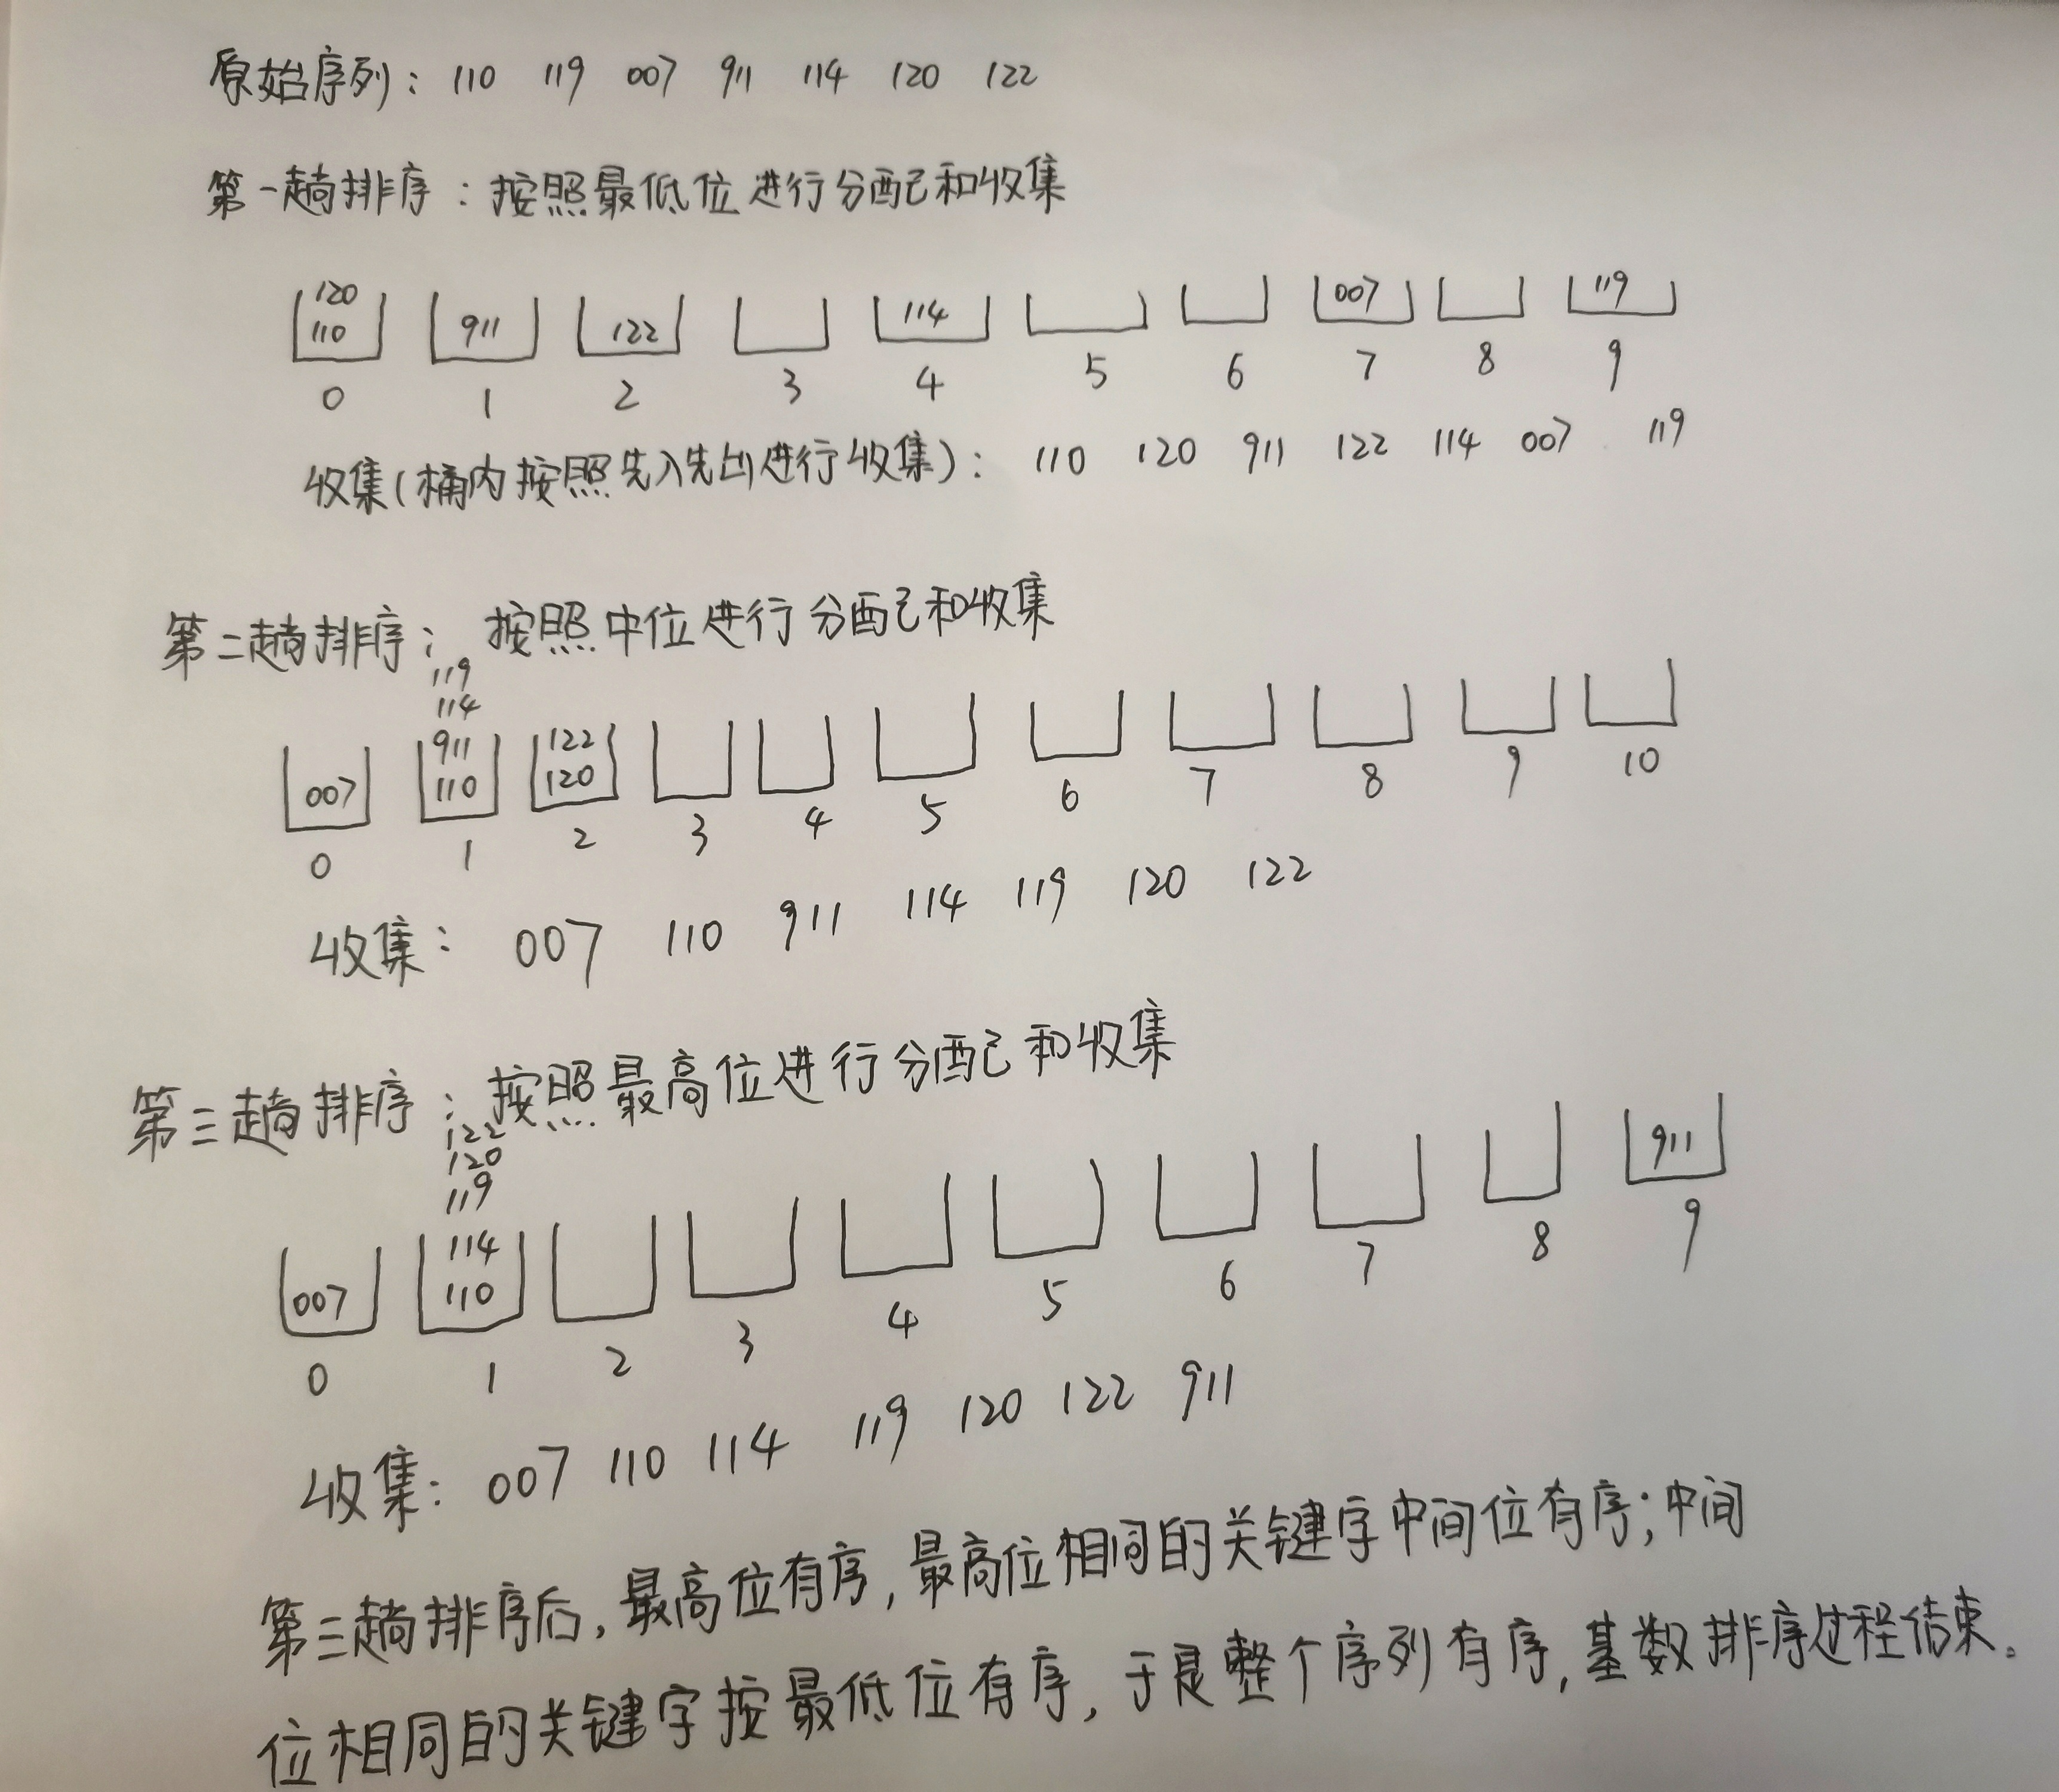 原始序列: 110 119 007 911 114 120 122
第一趟排序: 按照最低位进行分配和收集
120
110 911 122 114 007 119
0 1 2 3 4 5 6 7 8 9
收集(桶内按照先入先出进行收集): 110 120 911 122 114 007 119
第二趟排序: 按照中位进行分配和收集
119
114
911 122
007 110 120
0 1 2 3 4 5 6 7 8 9 10
收集: 007 110 911 114 119 120 122
第三趟排序: 按照最高位进行分配和收集
122
120
119
114
007 110 911
0 1 2 3 4 5 6 7 8 9
收集: 007 110 114 119 120 122 911
第三趟排序后,最高位有序,最高位相同的关键字中间位有序;中间
位相同的关键字按最低位有序,于是整个序列有序,基数排序过程结束。